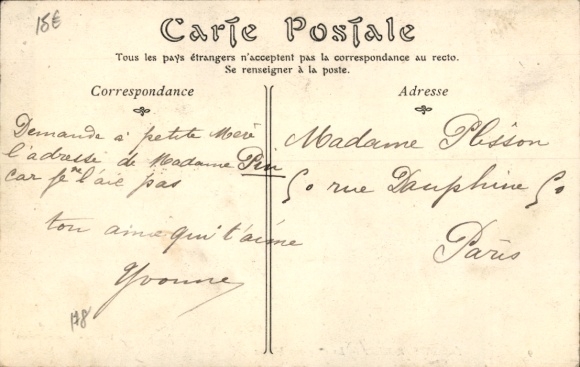 15€
Carte Postale
Tous les pays étrangers n'acceptent pas la correspondance au recto.
Se renseigner à la poste.
Correspondance
Demande a petite Mère
l'adresse de Madame Pin
car je ne l'aie pas
ton amie qui t'aime
Yvonne
178
Adresse
Madame Plisson
50 rue Dauphine 50
Paris